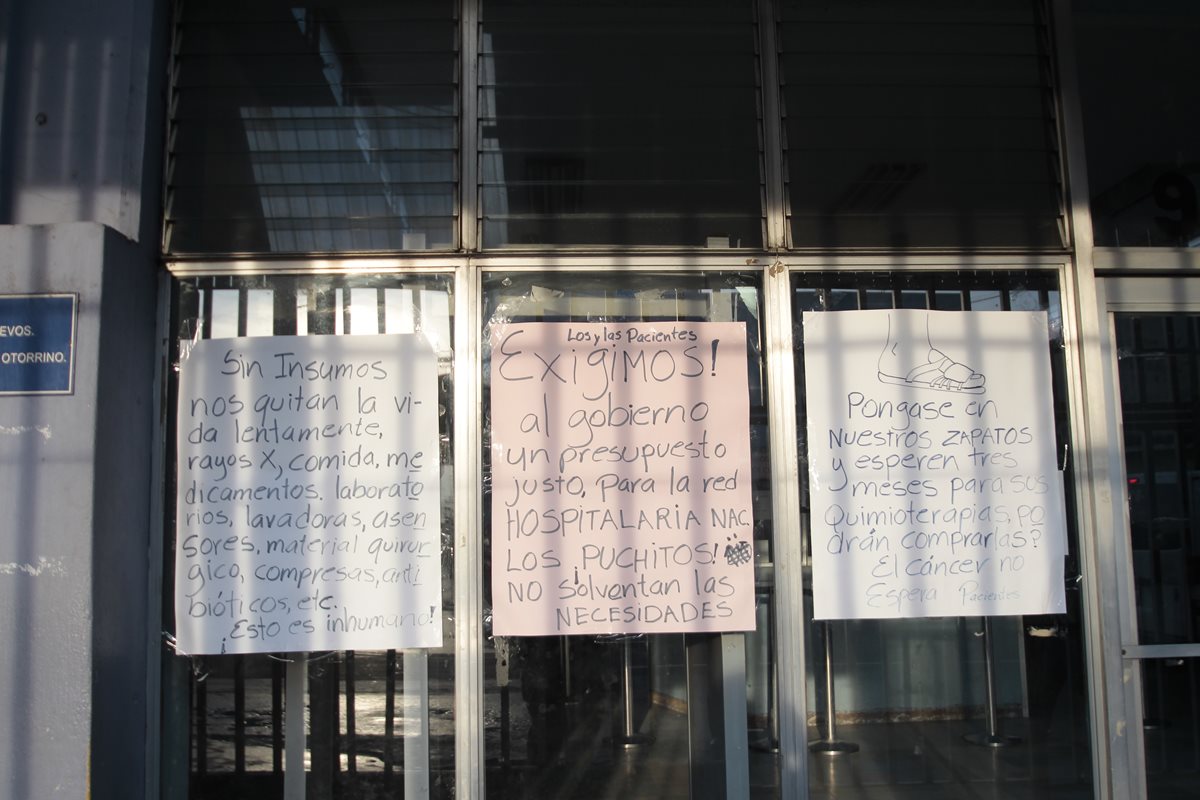 EVOS.
OTORRINO.
Sin Insumos
nos quitan la vi-
da lentamente,
rayos X, comida, me
dicamentos. laborato
rios, lavadoras, asen
sores, material quirur
gico, compresas, anti
bióticos, etc.
¡Esto es inhumano!
Los y las Pacientes
Exigimos!
al gobierno
un presupuesto
justo, para la red
HOSPITALARIA NAC.
LOS ¡PUCHITOS!
NO solventan las
NECESIDADES
Pongase en
Nuestros ZAPATOS
y esperen tres
meses para sus
Quimioterapias, po
drán comprarlas?
El cáncer no
Espera Pacientes
9